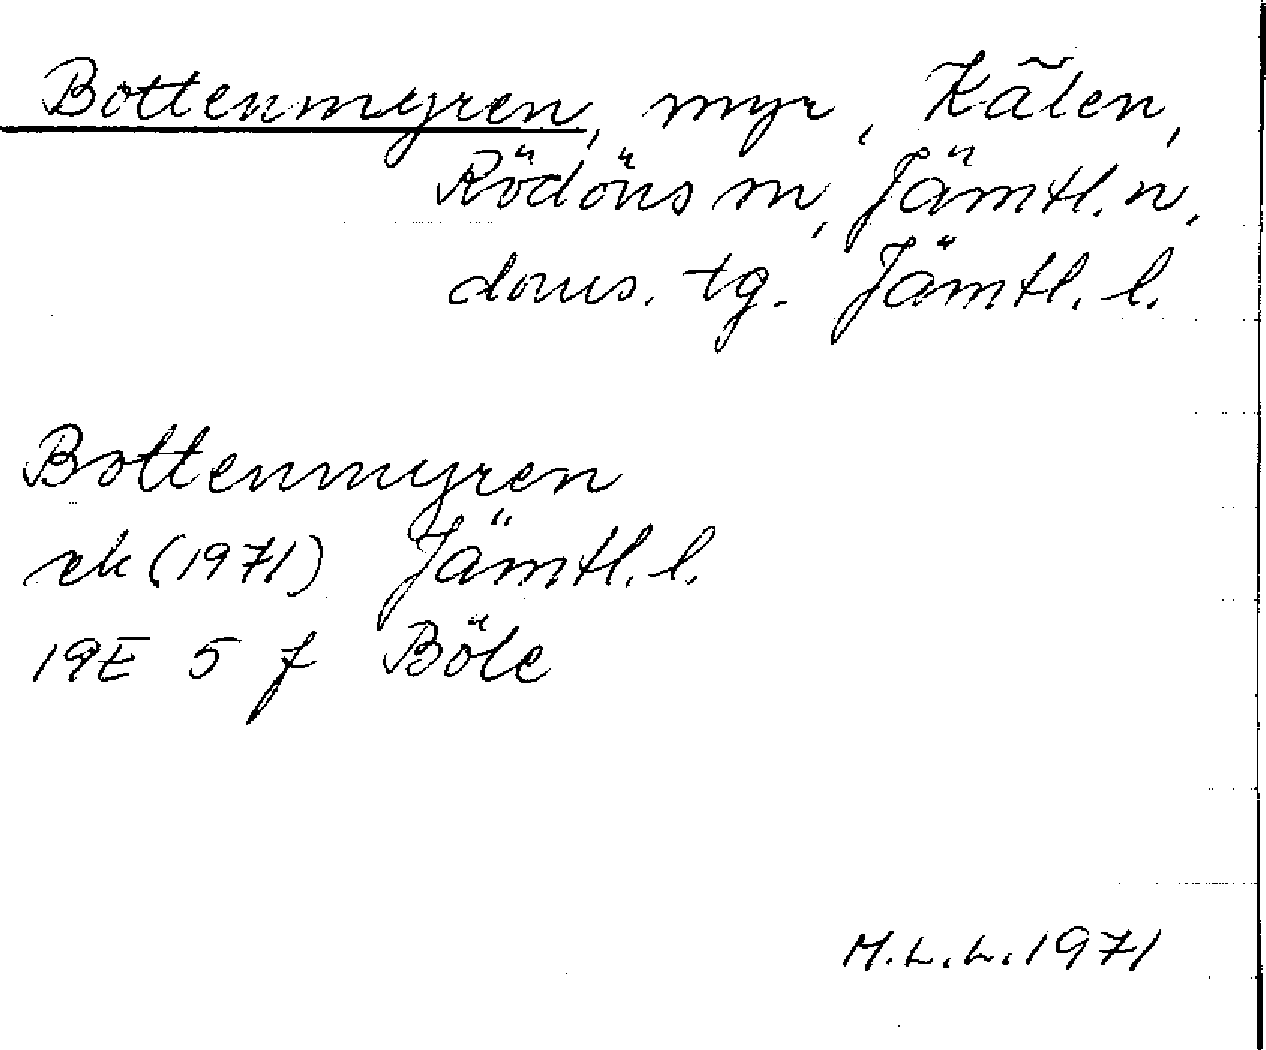 Bottenmyren, myr, Kãlen,
Rödöns m, Jämtl. n,
doms. tg. Jämtl. l.
Bottenmyren
rk (1971) Jämtl. l.
19E 5 f Böle
M.L.L. 1971